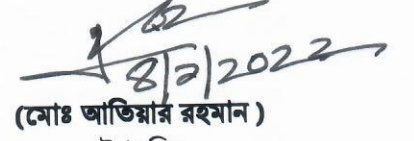 8/2/2022
(মোঃ আতিয়ার রহমান)